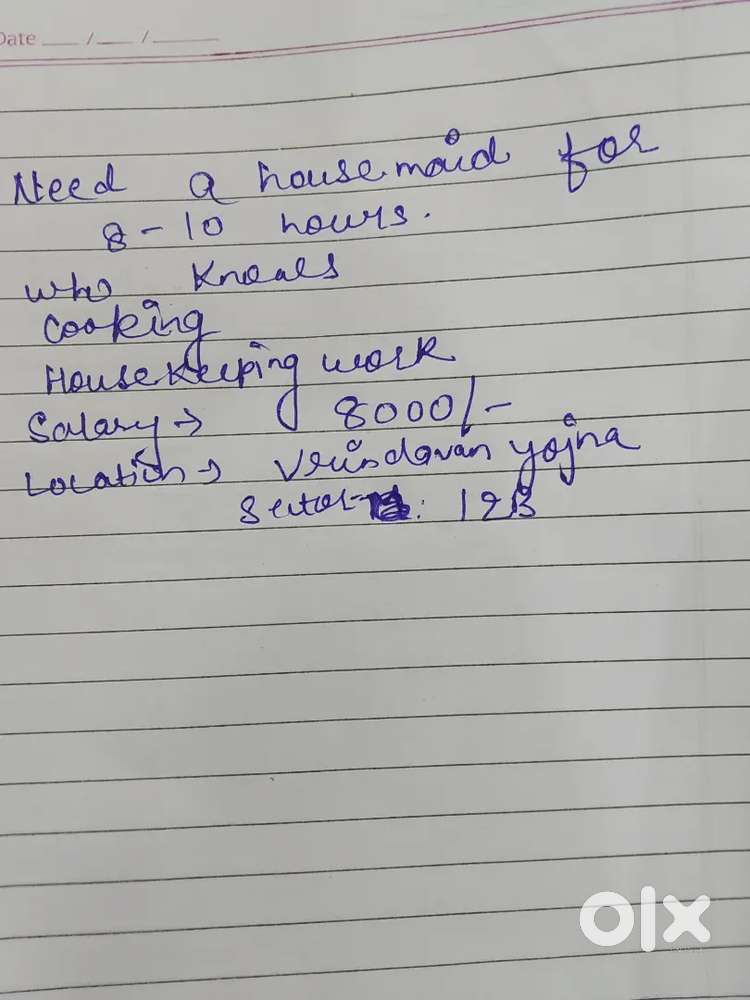 Date __/__/____
Need a housemaid for
8-10 hours.
who knows
cooking
Housekeeping work
Salary → 8000/-
Location → Vrindavan yojna
Sector : 12B
olx